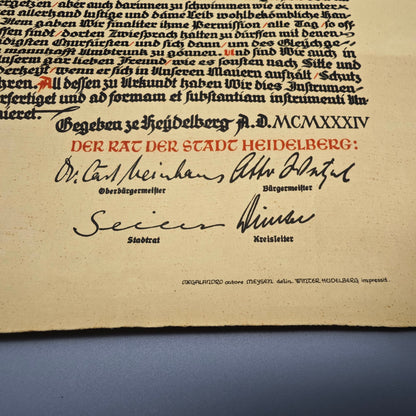 ergetzen/ aber auch darinnen zu schwimmen wie ein
und allerhand lustige und däme Leib wohlbekömliche
Item gaben Wir hinaliter ihme Permission/ alle Tag/ so oft
offen findt/ dorten Zwiesprach halten zu dürffen mit denen
digisten Churfürsten/ und sich dann/ um des Gleüchge
mannhafft Umbtrunk zu gönnen. Und sind Wir auch in
Unserm gar lieben Freund/ wie es sonsten nach Sitte und
Herkeyt/ wenn er sich in Unseren Mauern aufhält/ Schutz
hren. All dessen zu Urkundt haben Wir dies Instrumen-
erfertiget und ad formam et substantiam instrumenti
uieret.
Gegeben ze Heydelberg A.D. MCMXXXIV
DER RAT DER STADT HEIDELBERG:
Dr. Carl Neinhaus Otto Wetzel
Oberbürgermeister Bürgermeister
Seiler Dinkel
Stadtrat Kreisleiter
MEGALANDRO autore MEYSEN delin. WINTER HEIDELBERG impressit.